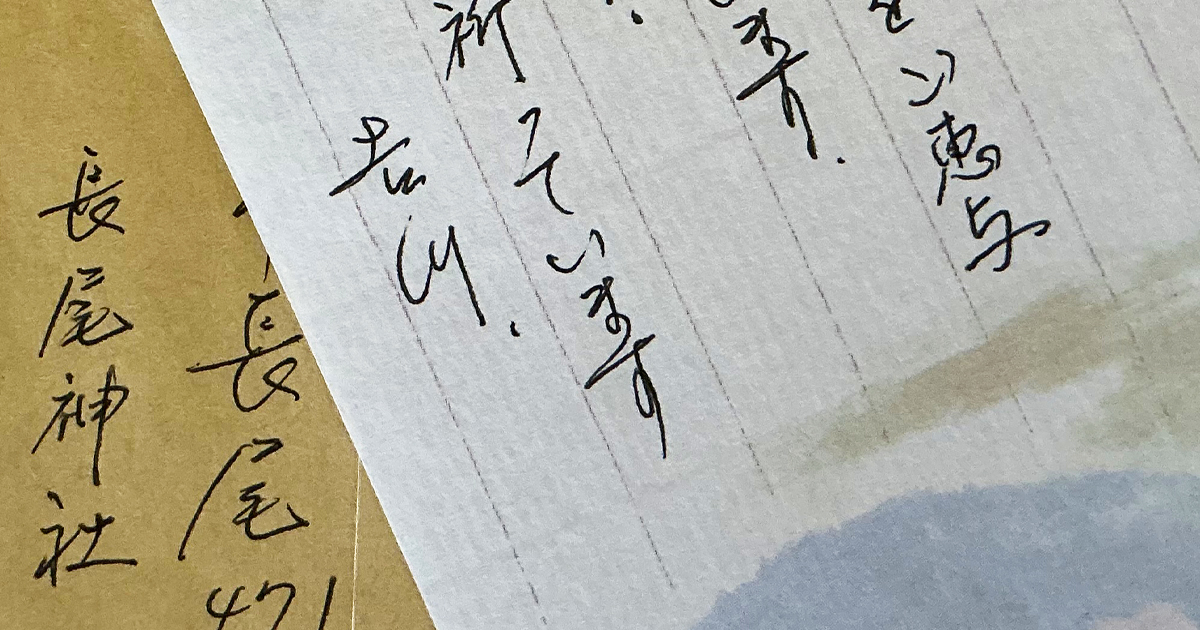 をご恵与
ます.
祈っています
吉川.
長尾471
長尾神社